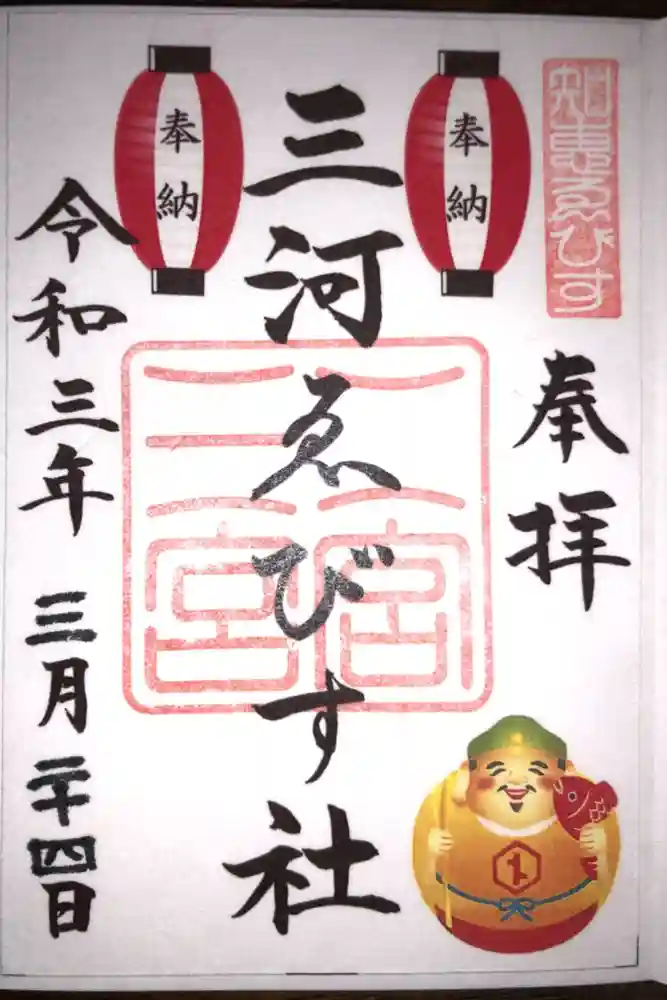 知恵ゑびす
奉拝
奉納
奉納
三河ゑびす社
二宮
三宮
令和三年 三月二十四日